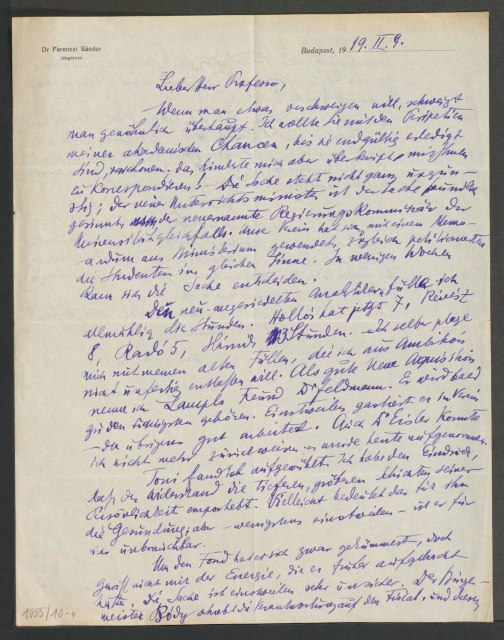 Dr Ferenczi Sándor
idegorvos
Budapest, 1919. II. 9.
Lieber Herr Professor,
Wenn man etwas verschweigen will, schweigt
man gewöhnlich überhaupt. Ich wollte Sie mit den Peripetien
meiner akademischen Chancen, bis sie endgültig erledigt
sind, verschonen. das hinderte mich aber überhaupt mit Ihnen
zu korrespondieren. Die Sache steht nicht ganz ungün-
stig; der neue Unterrichtsminister ist der Sache
gesinnt, der neuernannte Regierungskommissär der
Universität gleichfalls. Unser Verein hat sich mit einem Memo-
randum ans Ministerium gewendet, zugleich petitionierten
die Studenten im gleichen Sinne. In wenigen Wochen
kann sich die Sache entscheiden.
Den neu-angesiedelten Analytikern fülle ich
allmählig die Stunden. Hollós hat jetzt 7, Révész
8, Radó 5, Hárnik 3 Stunden. Ich selber plage
mich mit meinen alten Fällen, die ich aus Ambition
nicht unfertig entlassen will. Als gute neue Acquisition
nenne ich Lampls Freund Dr Feldmann. Er wird bald
zu den tüchtigsten gehören. Einstweilen gastiert er im Verein
– der übrigens gut arbeitet. Auch Dr Eisler konnte
ich nicht mehr zurückweisen; er wurde heute aufgenommen.
Toni fand ich aufgewühlt. Ich habe den Eindruck,
daß der Widerstand die tieferen, gröberen Schichten seiner
Persönlichkeit emporhebt. Vielleicht bedeutet das für ihn
die Gesundung; aber – wenigstens einstweilen – ist er für
uns unbrauchbar.
Um den Fond hat er sich zwar gekümmert, doch
gewiß nicht mit der Energie, die er früher aufgebracht
hätte. Die Sache ist einstweilen sehr unsicher. Der Bürger-
meister Bódy schiebt die Verantwortung auf den Fiskal, und dieser
1055/10-4